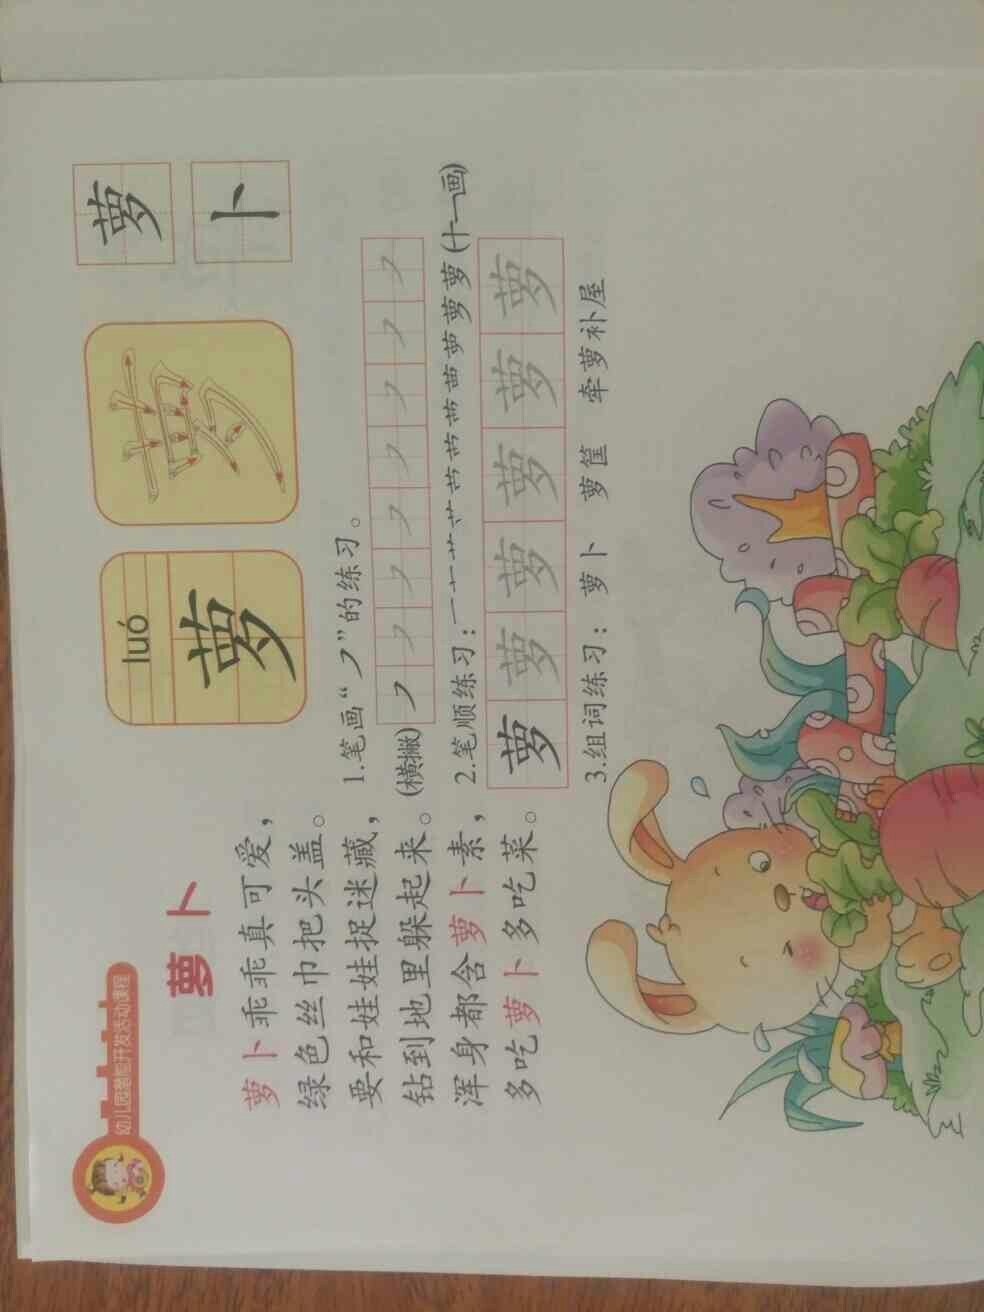 幼儿园潜能开发活动课程
萝卜
萝卜乖乖真可爱，
绿色丝巾把头盖。
要和娃娃捉迷藏，
钻到地里躲起来。
浑身都含萝卜素，
多吃萝卜多吃菜。
luó
萝
萝
萝
卜
1.笔画“㇇”的练习。
(横撇)㇇㇇㇇㇇㇇㇇㇇㇇
2.笔顺练习：(十一画)
萝萝萝萝萝萝
3.组词练习：萝卜 萝筐 牵萝补屋